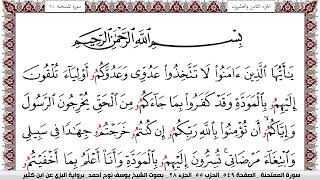 الجزء الثامن والعشرون سورة الممتحنة ٦٠
بِسْمِ ٱللَّهِ ٱلرَّحْمَٰنِ ٱلرَّحِيمِ
يَٰٓأَيُّهَا ٱلَّذِينَ ءَامَنُوا۟ لَا تَتَّخِذُوا۟ عَدُوِّى وَعَدُوَّكُمُۥ أَوْلِيَآءَ تُلْقُونَ
إِلَيْهِمُۥ بِٱلْمَوَدَّةِ وَقَدْ كَفَرُوا۟ بِمَا جَآءَكُمُۥ مِنَ ٱلْحَقِّ يُخْرِجُونَ ٱلرَّسُولَ
وَإِيَّاكُمُۥ أَن تُؤْمِنُوا۟ بِٱللَّهِ رَبِّكُمُۥ إِن كُنتُمُۥ خَرَجْتُمُۥ جِهَٰدًا فِى سَبِيلِى
وَٱبْتِغَآءَ مَرْضَاتِى تُسِرُّونَ إِلَيْهِمُۥ بِٱلْمَوَدَّةِ وَأَنَا۠ أَعْلَمُ بِمَا أَخْفَيْتُمُۥ
سورة الممتحنة. الصفحة ٥٤٩. الحزب ٥٥. الجزء ٢٨. بصوت الشيخ يوسف نوح أحمد. برواية البزي عن ابن كثير